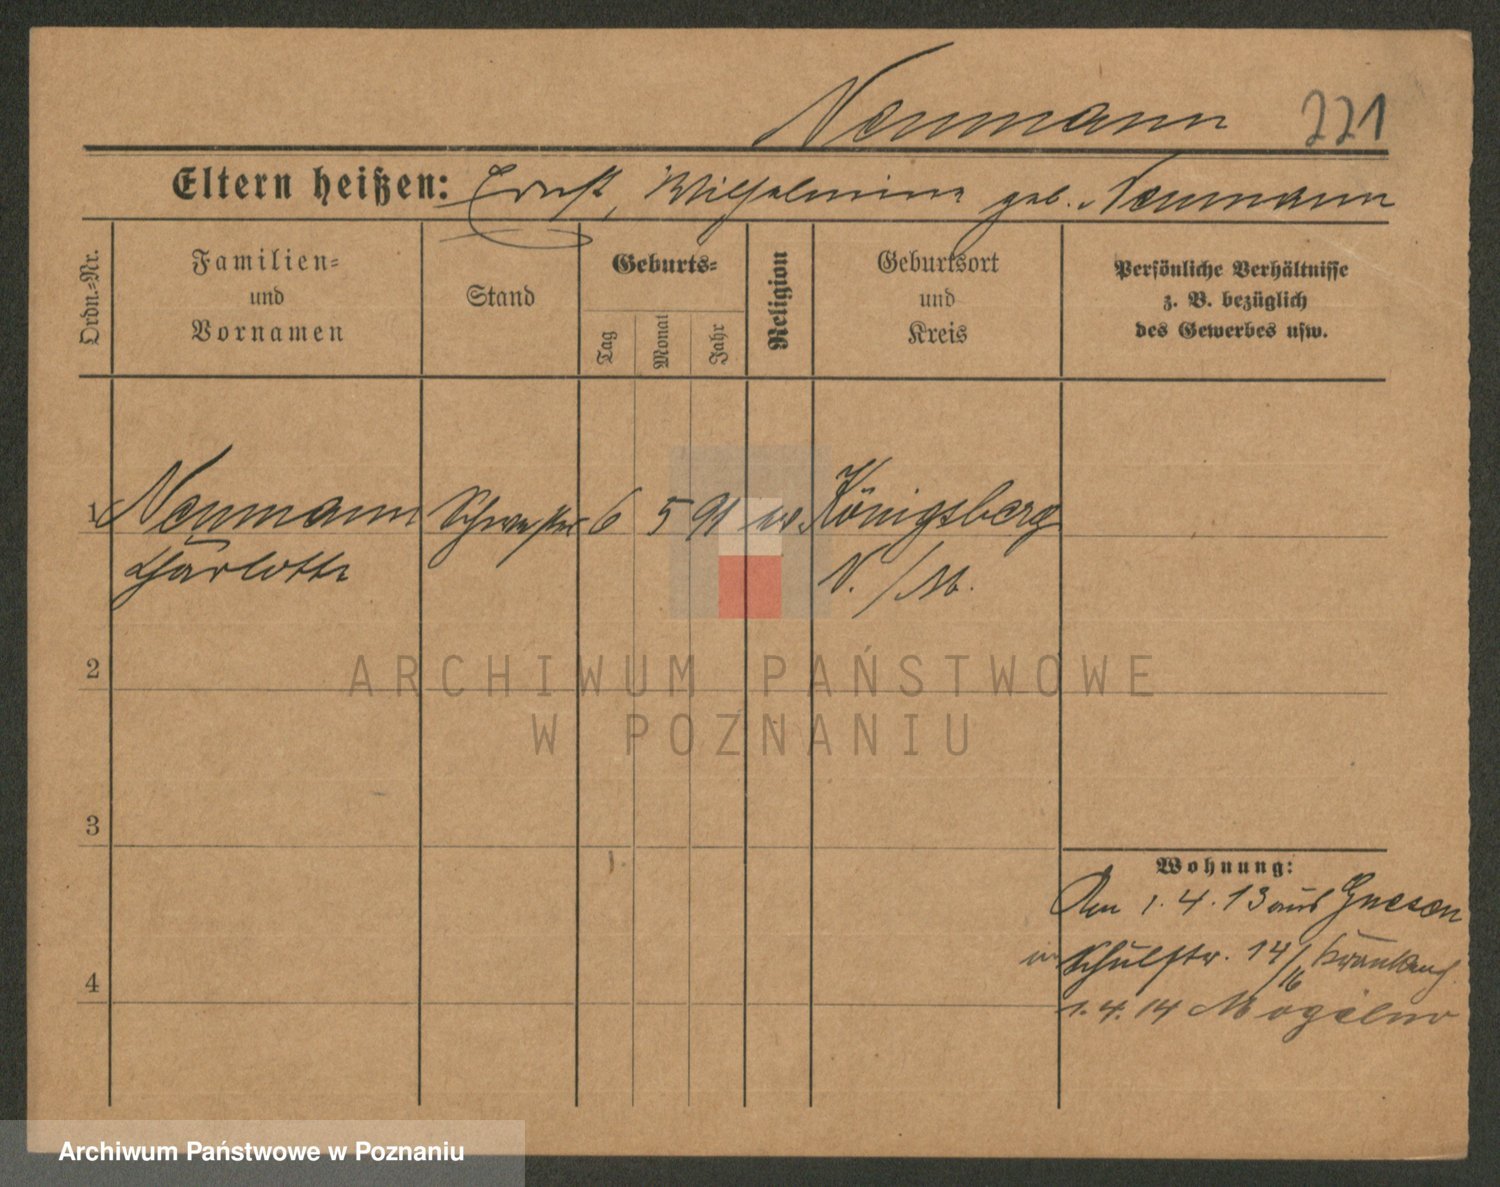 Neumann 221
Eltern heißen: Ernst, Wilhelmine geb. Neumann
Ordn.-Nr.
Familien=
und
Vornamen
Stand
Geburts=
Tag
Monat
Jahr
Religion
Geburtsort
und
Kreis
Persönliche Verhältnisse
z. B. bezüglich
des Gewerbes usw.
1 Neumann Schwester 6 5 91 Königsberg
Charlotte N./M.
2
ARCHIWUM PAŃSTWOWE
W POZNANIU
3
Wohnung:
Am 1.4.13 aus Gnesen
in Schulstr. 14/16
4
1.4.14 Mogilno
Archiwum Państwowe w Poznaniu